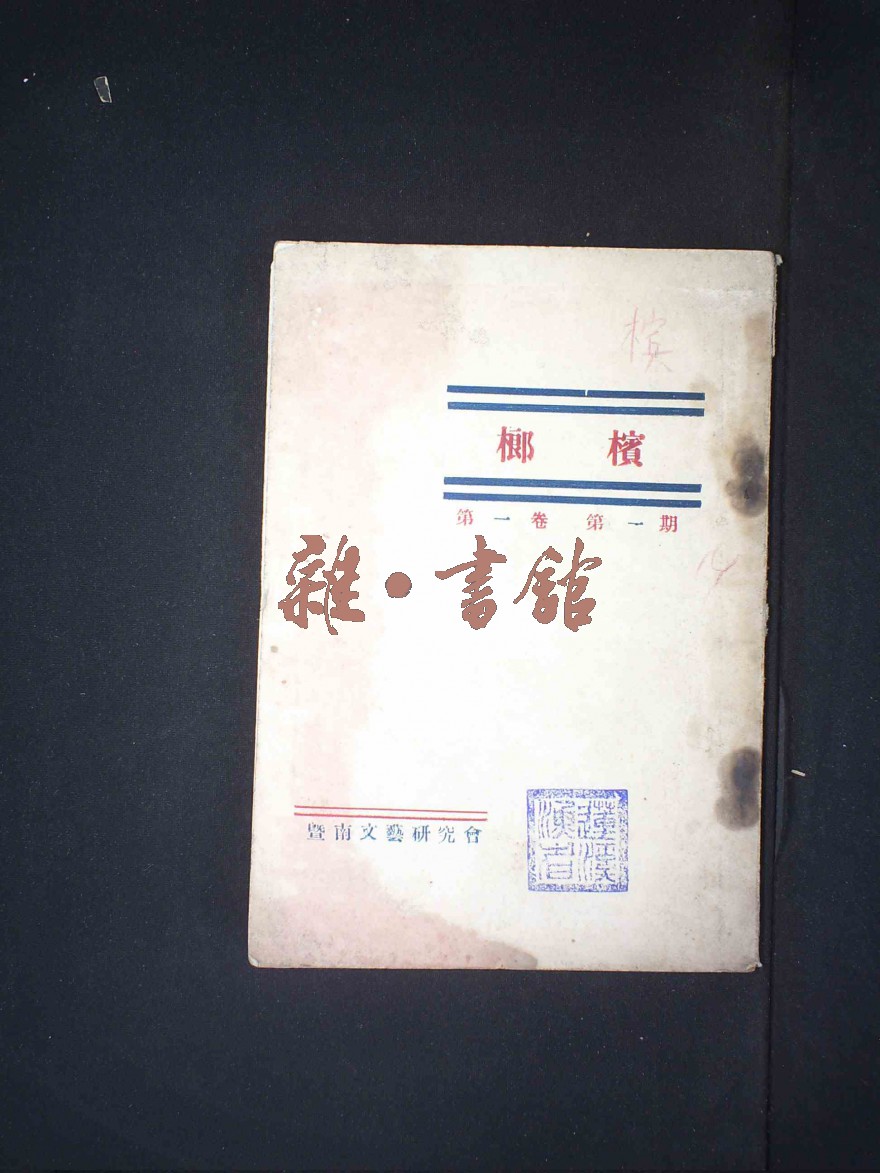 檳榔
第一卷 第一期
雜•書館
暨南文藝研究會